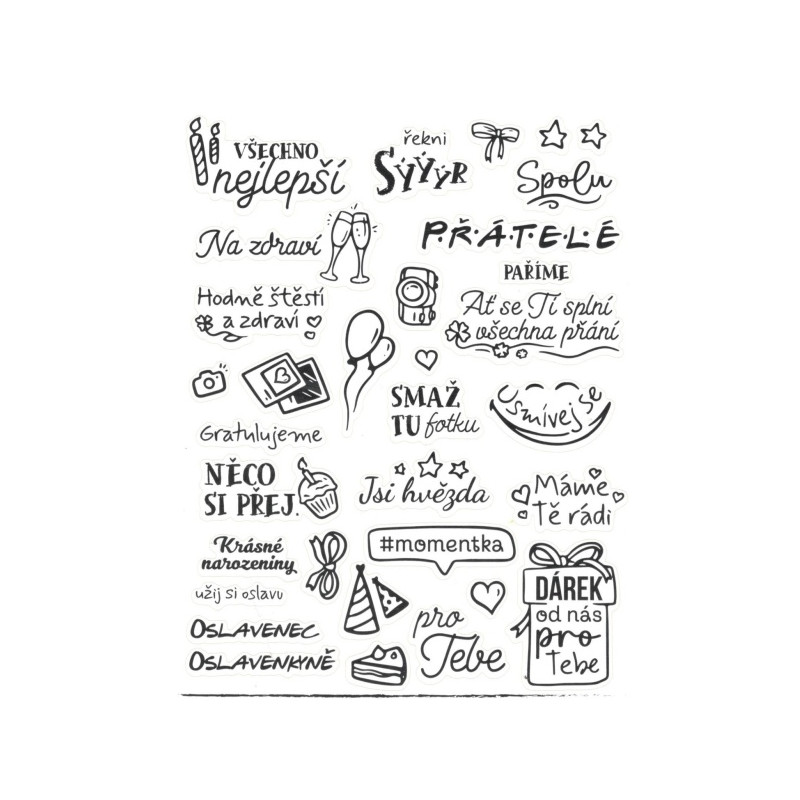 VŠECHNO
nejlepší
řekni
SÝÝÝR
Spolu
Na zdraví
P·Ř·Á·T·E·L·É
PAŘÍME
Hodně štěstí
a zdraví
Ať se Tí splní
všechna přání
SMAŽ
TU fotku
Usmívej se
Gratulujeme
NĚCO
SI PŘEJ.
Jsi hvězda
Máme
Tě rádi
Krásné
narozeniny
#momentka
užij si oslavu
OSLAVENEC
OSLAVENKYNĚ
pro
Tebe
DÁREK
od nás
pro
Tebe